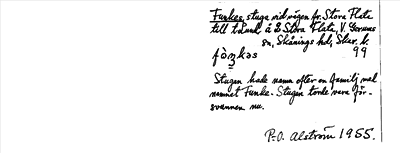 Funkes, stuga vid vägen fr. Stora Flata
till å Stora Flata, V. Gerums
sn, Skånings hd, Skar. l.
99
Stugan hade namn efter en familj med
namnet Funke. Stugan torde vara för-
svunnen nu.
P.O. Alström 1955.